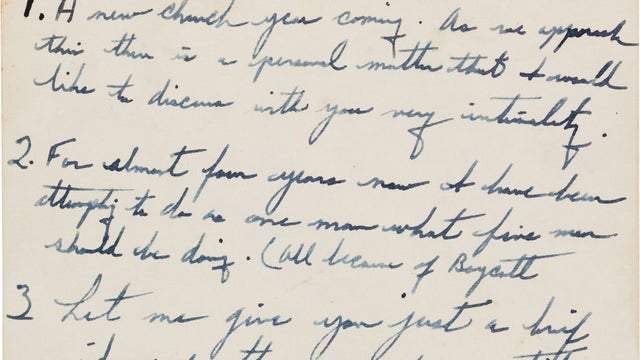 1. A new church year coming. As we approach
this ther is a personal matter that I would
like to discuss with you very intimality.
2. For almost four years now I have been
attempting to do as one man what five men
should be doing. (All because of Boycott
3 Let me give you just a brief